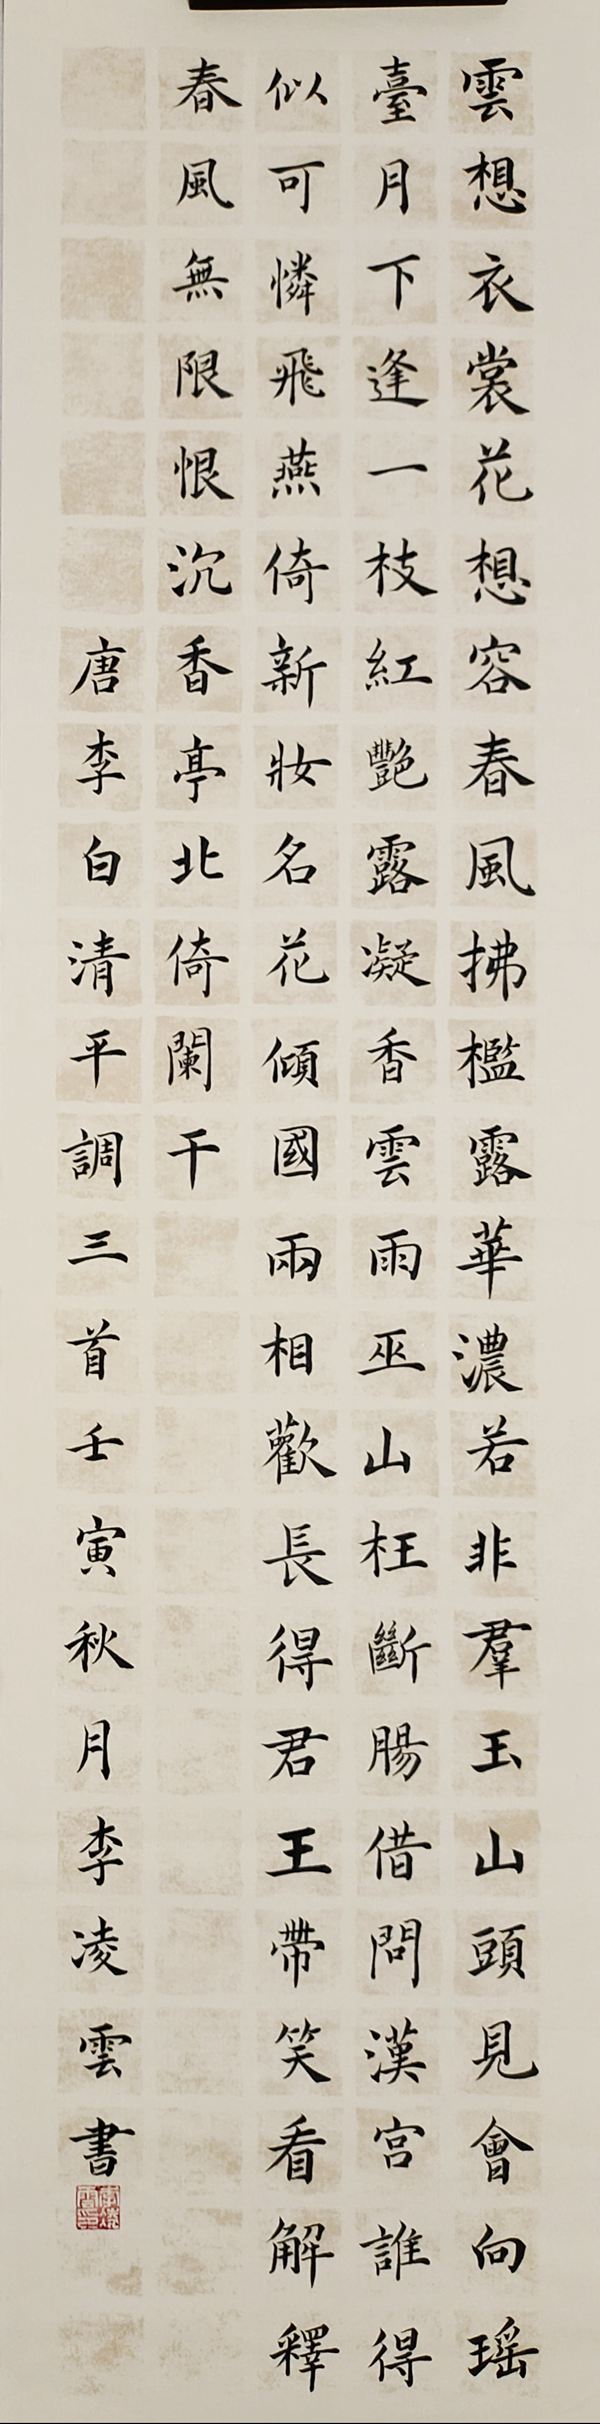 雲想衣裳花想容春風拂檻露華濃若非羣玉山頭見會向瑶
臺月下逢一枝紅艷露凝香雲雨巫山枉斷腸借問漢宮誰得
似可憐飛燕倚新妝名花傾國兩相歡長得君王帶笑看解釋
春風無限恨沉香亭北倚闌干
唐李白清平調三首壬寅秋月李凌雲書